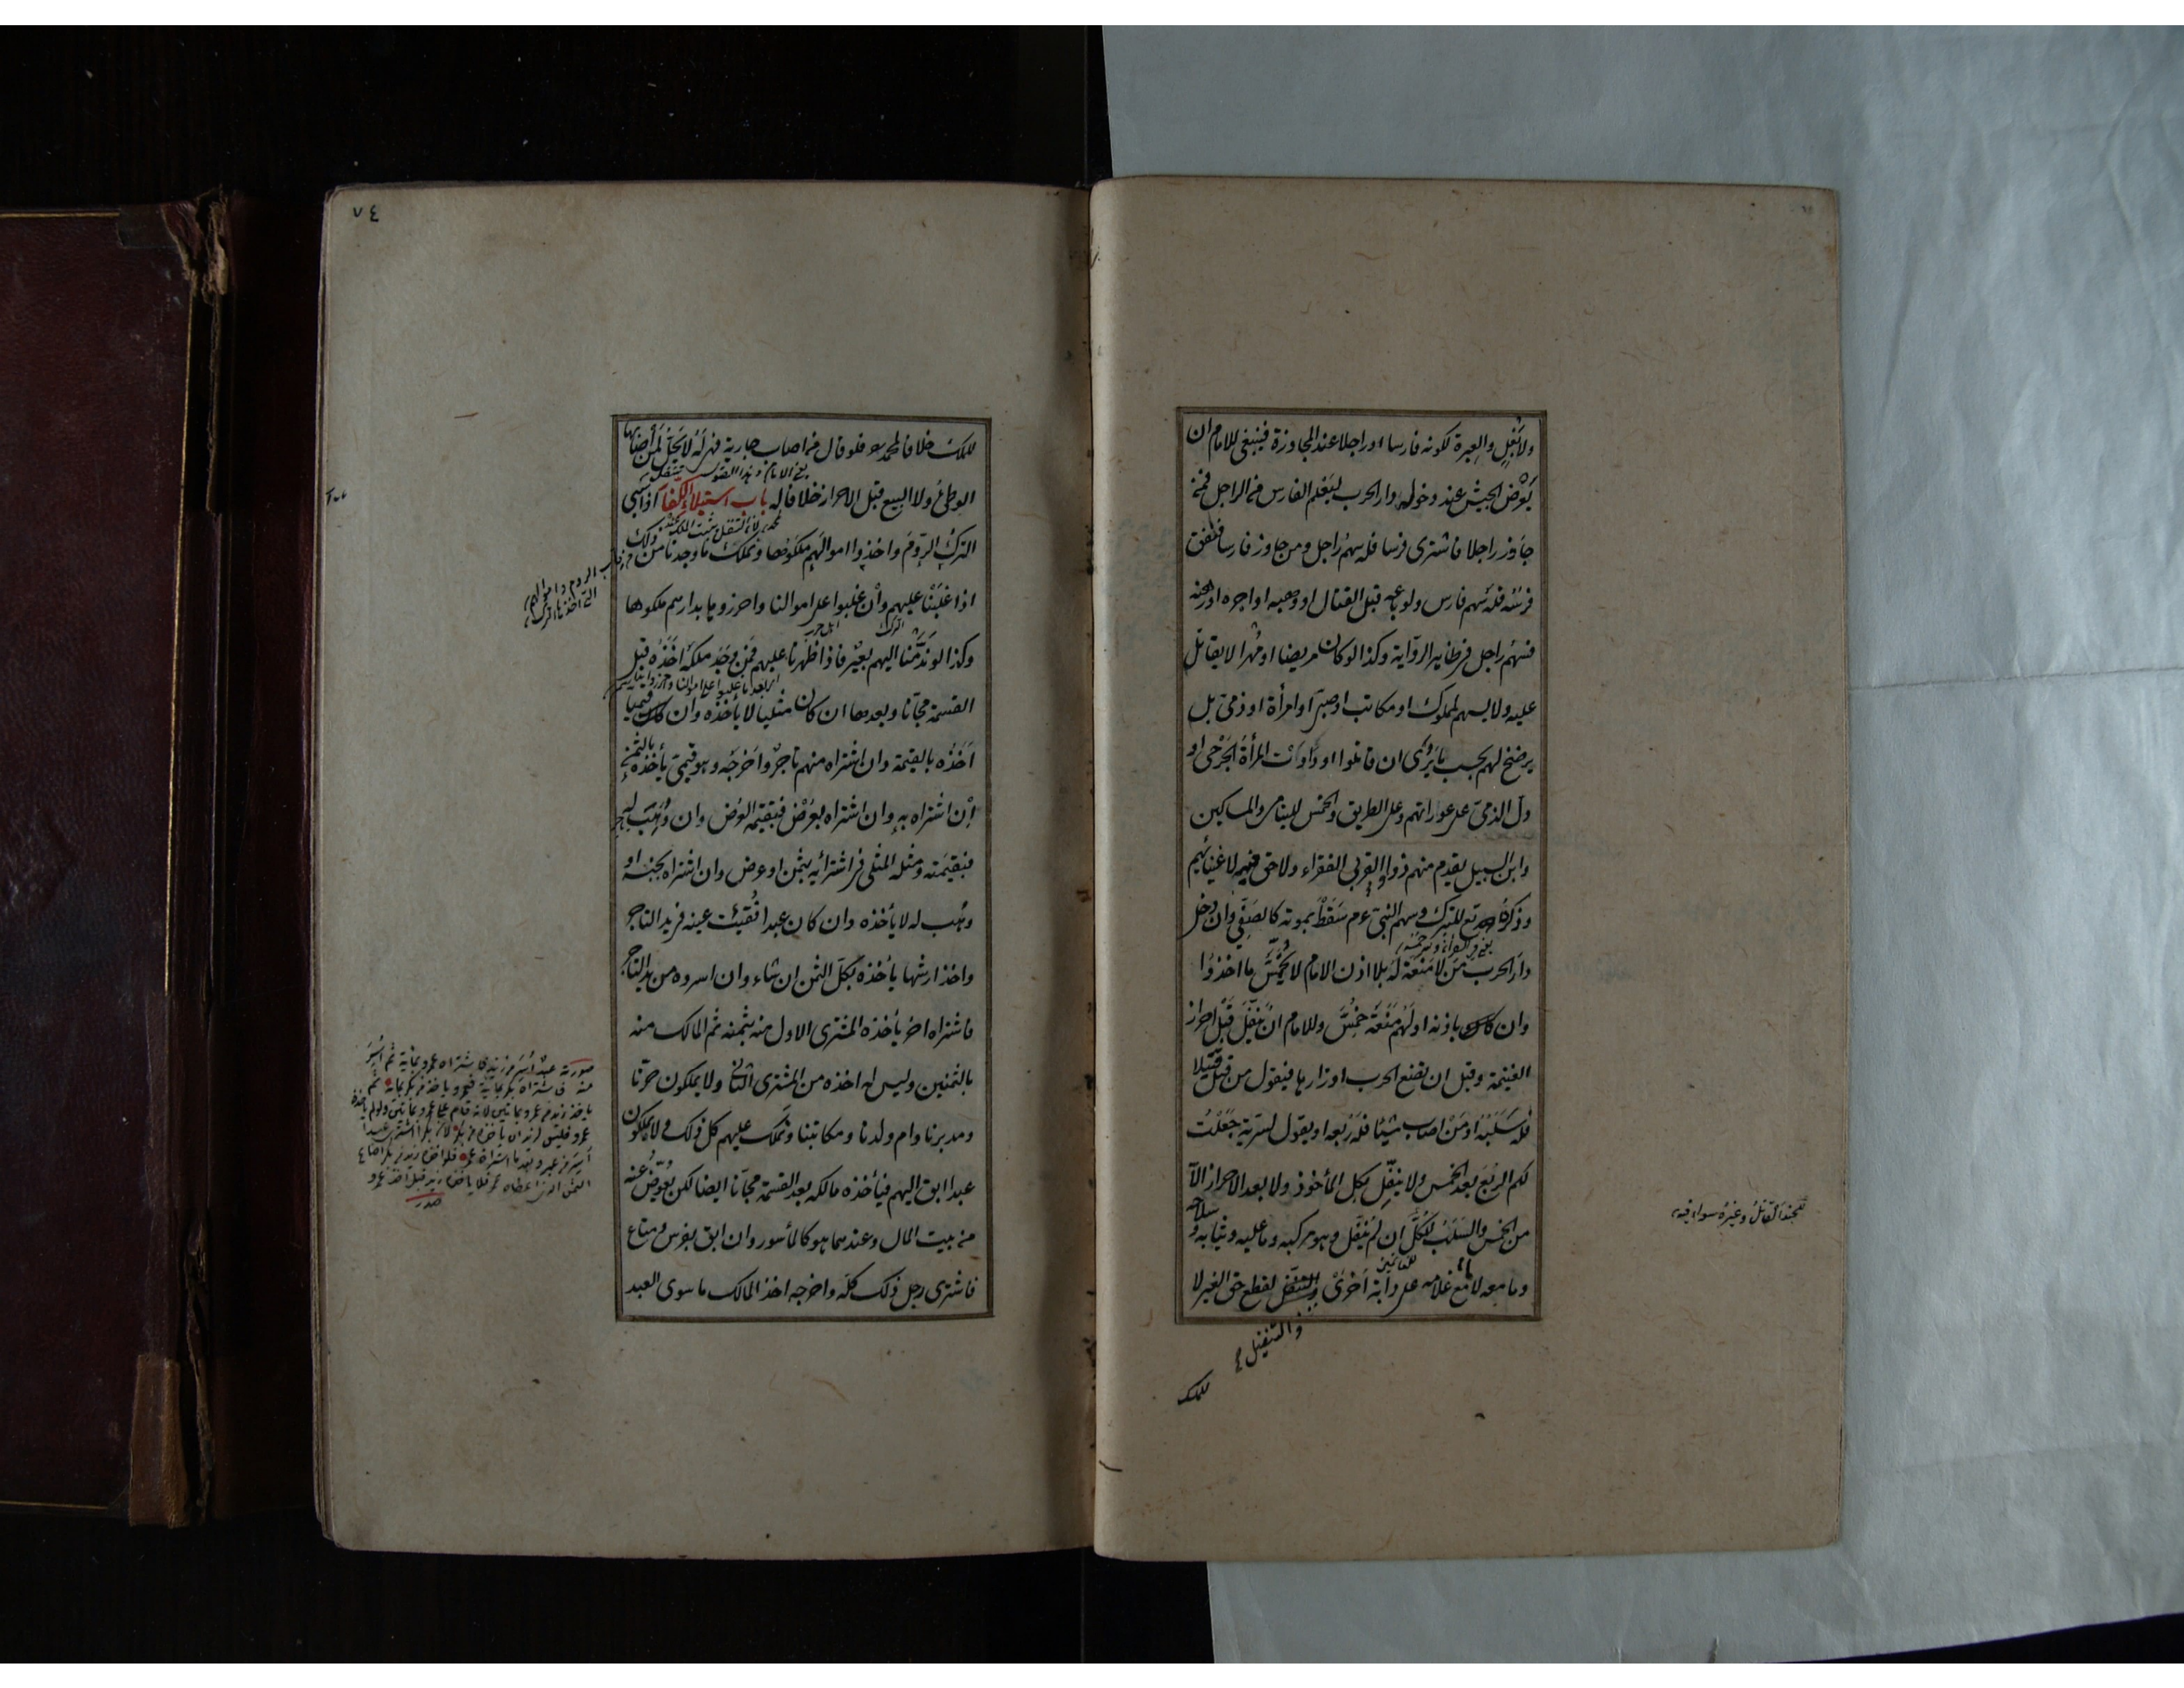 ولا بغل والعبرة لكونه فارسا او راجلا عند المجاوزة فينبغي للامام ان
يعرض الجيش عند دخوله دار الحرب ليعلم الفارس من الراجل فمن
جاوز راجلا فاشترى فرسا فله سهم راجل ومن جاوز فارسا فنفق
فرسه فله سهم فارس ولو باعه قبل القتال او وهبه او اجره او رهنه
فسهم راجل في ظاهر الرواية وكذا لو كان مريضا او مهرا لا يقاتل
عليه ولا يسهم لمملوك او مكاتب او صبي او امرأة او ذمي بل
يرضخ لهم بحسب ما يرى ان قاتلوا او داوت المرأة الجرحى او
دل الذمي على عوراتهم وعلى الطريق والخمس لليتامى والمساكين
وابن السبيل يقدم منهم ذووا القربى الفقراء ولا حق فيه لاغنيائهم
وذكره تع للتبرك وسهم النبي عم سقط بموته كالصفي وان دخل
دار الحرب من لا منعة له بلا اذن الامام لا يخمس ما اخذوا
وان كان باذنه او لهم منعة خمس وللامام ان ينفل قبل احراز
الغنيمة وقبل ان تضع الحرب اوزارها فيقول من قتل قتيلا
فله سلبه او من اصاب شيئا فله ربعه او يقول لسرية جعلت
لكم الربع بعد الخمس ولا ينفل بكل المأخوذ ولا بعد الاحراز الا
من الخمس والسلب للكل ان لم ينفل وهو مركبه وما عليه وثيابه وسلاحه
وما معه لا ما مع غلامه على دابة اخرى والتنفل لقطع حق الغير لا
والتنفيل
للملك
فجند القاتل وغيره سواء فيه
٧٤
للملك خلافا لمحمد فلو قال من اصاب جارية فهي له لا يحل لمن اصابها
الوطئ ولا البيع قبل الاحراز خلافا له باب استيلاء الكفار اذا سبى
الترك الروم واخذوا اموالهم ملكوها ونملك ما وجدنا من ذلك
اذا غلبنا عليهم وان غلبوا على اموالنا واحرزوها بدارهم ملكوها
وكذا لو ند منا اليهم بعير فاذا ظهرنا عليهم فمن وجد ملكه اخذه قبل
القسمة مجانا وبعدها ان كان مثليا لا يأخذه وان كان قيميا
اخذه بالقيمة وان اشتراه منهم تاجر واخرجه وهو قيمي يأخذه بالثمن
ان اشتراه به وان اشتراه بعرض فبقيمة العرض وان وهب له
فبقيمته ومثله المثلي في اشترائه بثمن او عرض وان اشتراه بجنسه او
وهب له لا يأخذه وان كان عبدا ففقئت عينه في يد التاجر
واخذ ارشها يأخذه بكل الثمن ان شاء وان اسروه من يد التاجر
فاشتراه اخر يأخذه المشتري الاول منه بثمنه ثم المالك منه
بالثمنين وليس له اخذه من المشتري الثاني ولا يملكون حرنا
ومدبرنا وام ولدنا ومكاتبنا ونملك عليهم كل ذلك ولا يملكون
عبدا ابق اليهم فيأخذه مالكه بعد القسمة مجانا ايضا لكن يعوض عنه
من بيت المال وعندهما هو كالمأسور وان ابق بفرس ومتاع
فاشترى رجل ذلك كله واخرجه اخذ المالك ما سوى العبد
الروم واموالهم
التي اخذها الترك